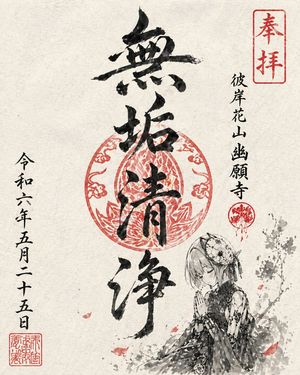 奉拝
彼岸花山 幽願寺
無垢清浄
令和六年五月二十五日